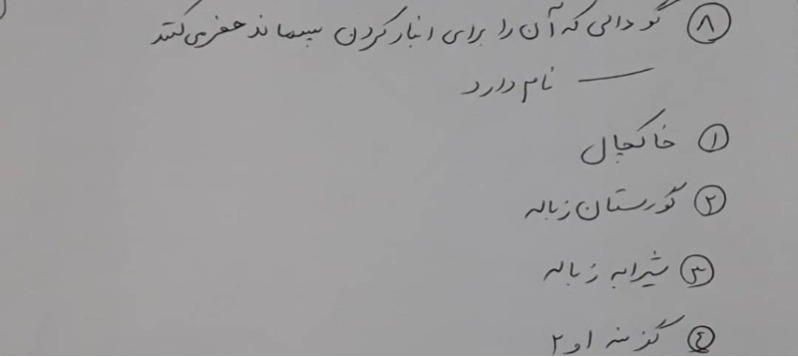 ۸ گودالی که آن را برای انبار کردن پسماند حفر می‌کنند
ـــــ نام دارد
۱ خاکچال
۲ گورستان زباله
۳ شیرابه زباله
۴ گزینه ۱ و ۲